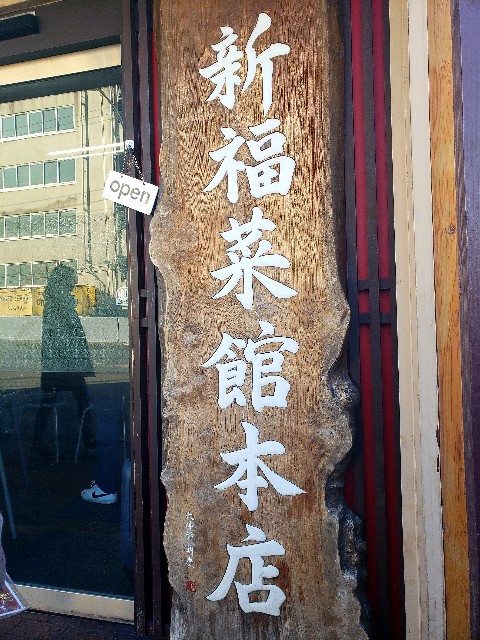 新福菜館本店
open